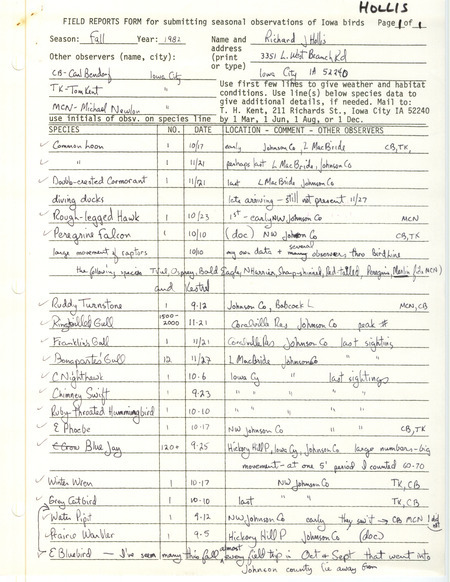 HOLLIS
FIELD REPORTS FORM for submitting seasonal observations of Iowa birds Page 1 of 1
Season: Fall Year: 1982 Name and address (print or type) Richard J Hollis
Other observers (name, city): 3351 L. West Branch Rd
CB - Carl Bendorf Iowa City Iowa City IA 52240
TK - Tom Kent " Use first few lines to give weather and habitat
conditions. Use line(s) below species data to
MCN - Michael Newlon " give additional details, if needed. Mail to:
T. H. Kent, 211 Richards St., Iowa City IA 52240
use initials of obsv. on species line by 1 Mar, 1 Jun, 1 Aug, or 1 Dec.
SPECIES NO. DATE LOCATION - COMMENT - OTHER OBSERVERS
Common Loon 1 10/17 early Johnson Co, L MacBride CB, TK,
" 1 11/21 perhaps last L MacBride, Johnson Co
Double-crested Cormorant 1 11/21 last L MacBride Johnson Co
diving ducks late arriving - still not present 11/27
Rough-legged Hawk 1 10/23 1st - early NW Johnson Co MCN
Peregrine Falcon 1 10/10 (doc) NW Johnson Co CB, TK
large movement of raptors 10/10 my own data + several observers thro Birdline
the following species T Vul, Osprey, Bald Eagle, N Harrier, Sharp-shinned, Red-tailed, Peregrine, Merlin
and Kestrel
Ruddy Turnstone 1 9-12 Johnson Co, Babcock L MCN, CB
Ringbilled Gull 1500-2000 11-21 Coralville Res Johnson Co peak #
Franklin's Gull 1 11/21 Coralville Res Johnson Co last sighting
Bonaparte's Gull 12 11/27 L MacBride Johnson Co
C Nighthawk 1 10-6 Iowa City " last sightings
Chimney Swift 9-23 " " "
Ruby-throated Hummingbird 1 10-10 " " "
E Phoebe 1 10-17 NW Johnson Co CB, TK
Blue Jay 120+ 9-25 Hickory Hill P, Iowa City, Johnson Co large numbers - big
movement - at one 5' period I counted 60-70
Winter Wren 1 10-17 NW Johnson Co TK, CB
Gray Catbird 1 10-10 last " TK, CB
Water Pipit 1 9-12 NW Johnson Co early they saw it → CB MCN I did not
Prairie Warbler 1 9-5 Hickory Hill P Johnson Co (doc)
E Bluebird - I've seen many this fall almost every field trip in Oct & Sept that went into
Johnson county